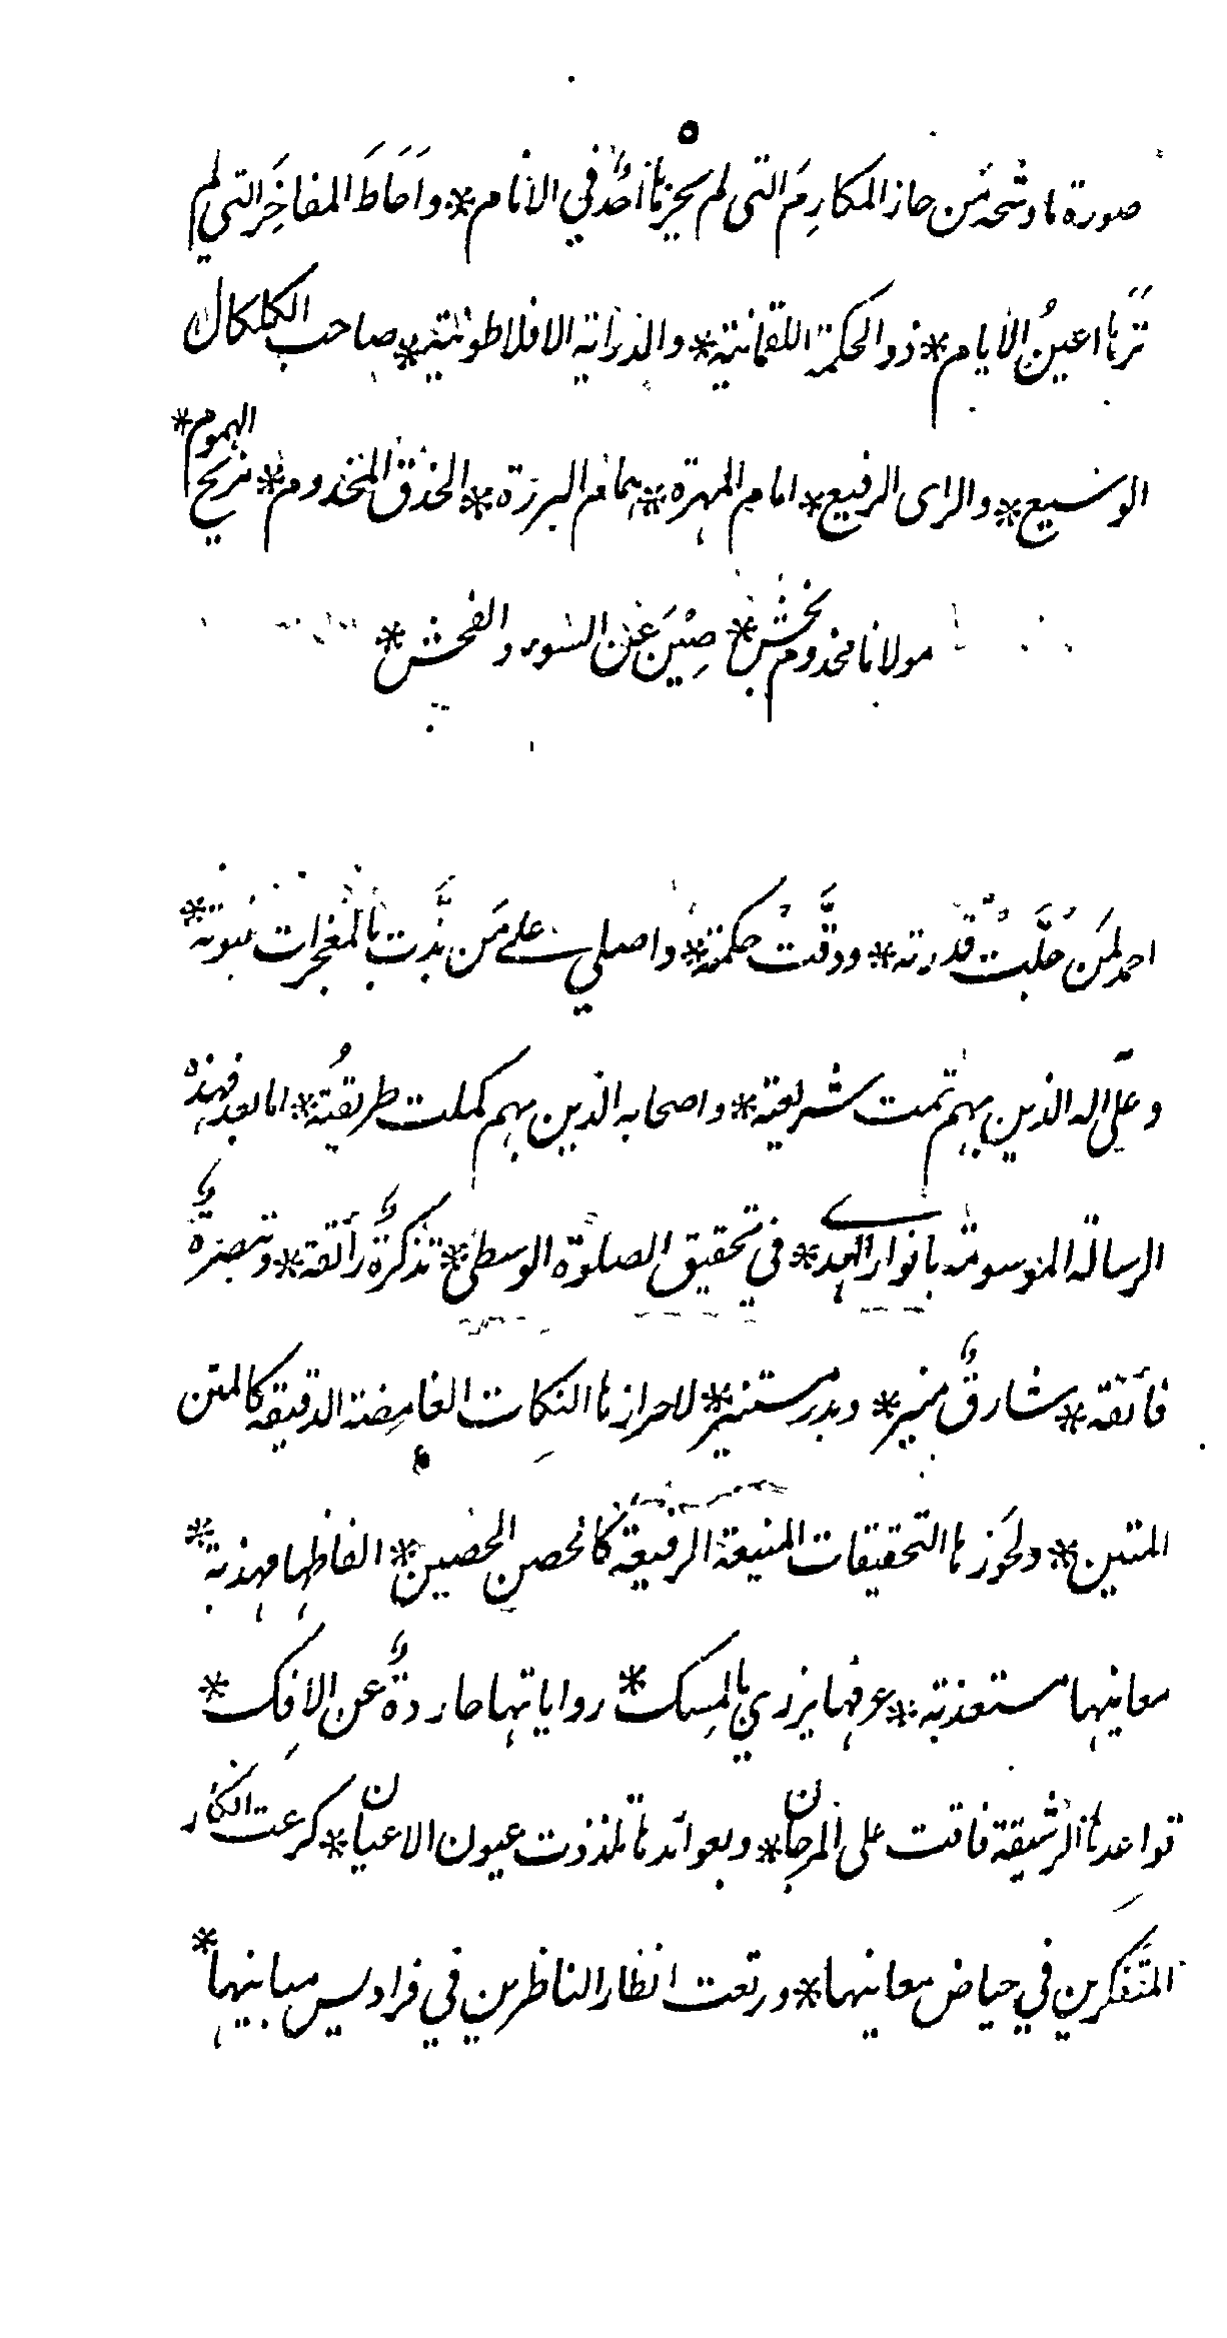 صورة ما وشحه مَن حاز المكارِمَ التى لم يحزها أحدٌ في الانام * واَحَاطَ المفاخِرَ التي لم
تَرَها اعينُ الأيام * ذو الحكمة اللقمانية * والدراية الافلاطونية * صاحب الكلكال
الوسيع * والراى الرفيع * امام المهرة * همام البررة * الحذق المخدوم * مزيح الهموم *
مولانا مخدوم بخش * صِيْنَ عَن السوء والفحش *
احمد لمَن جلَّتْ قدرته * ودقَّتْ حكمته * واصلي على مَن بذَّت بالمعجزات نبوته *
وعلى اله الذين بهم تمت شريعته * واصحابه الذين بهم كملت طريقتُه * اما بعد فهذه
الرسالة الموسومة بانوار الهدى * في تحقيق الصلوة الوسطى * تذكرةٌ رائقة * وتبصرةٌ
فائقة * شارقٌ منير * وبدر مستنير * لاحرازها النكات الغامِضة الدقيقة كالمتن
المتين * ولحَوزها التحقيقات المنيعة الرفيعة كالحصن الحصين * الفاظها مهذبة *
معانيها مستعذبة * عرفها يزري بالمِسك * رواياتها حاردةٌ عن الاِفك *
قواعدها الرشيقة فاقت على المرجان * وبعوائدها تلذذت عيون الاعيان * كرعت افكار
المتَفكرين في حياض معانيها * ورتعت انظار الناظرين في فراديس مبانيها *